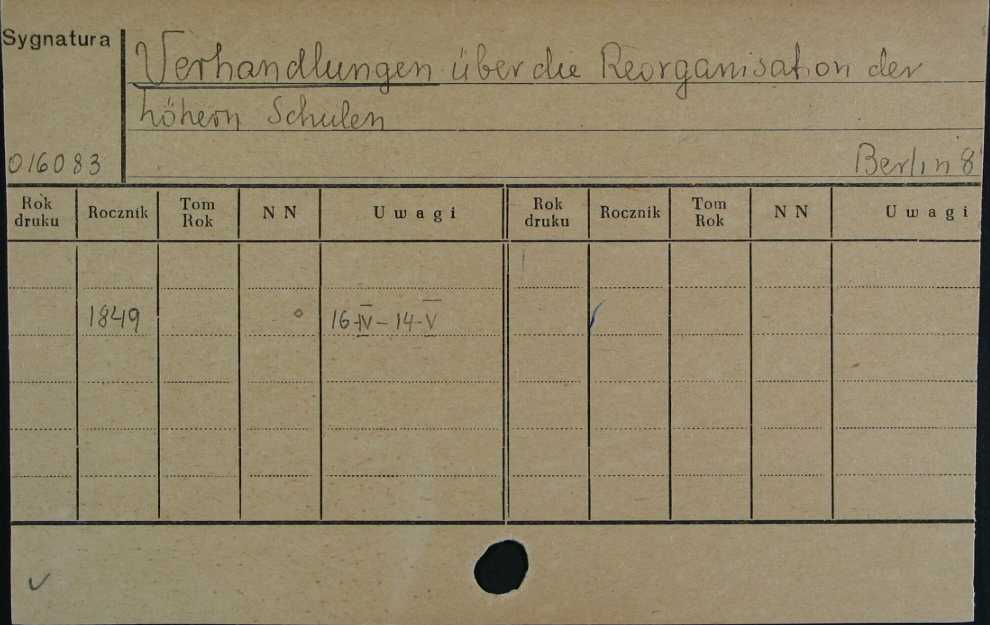 Sygnatura
Verhandlungen über die Reorganisation der
höhern Schulen
016083
Berlin 8
Rok druku Rocznik Tom Rok NN Uwagi Rok druku Rocznik Tom Rok NN Uwagi
1849 16-IV-14-V